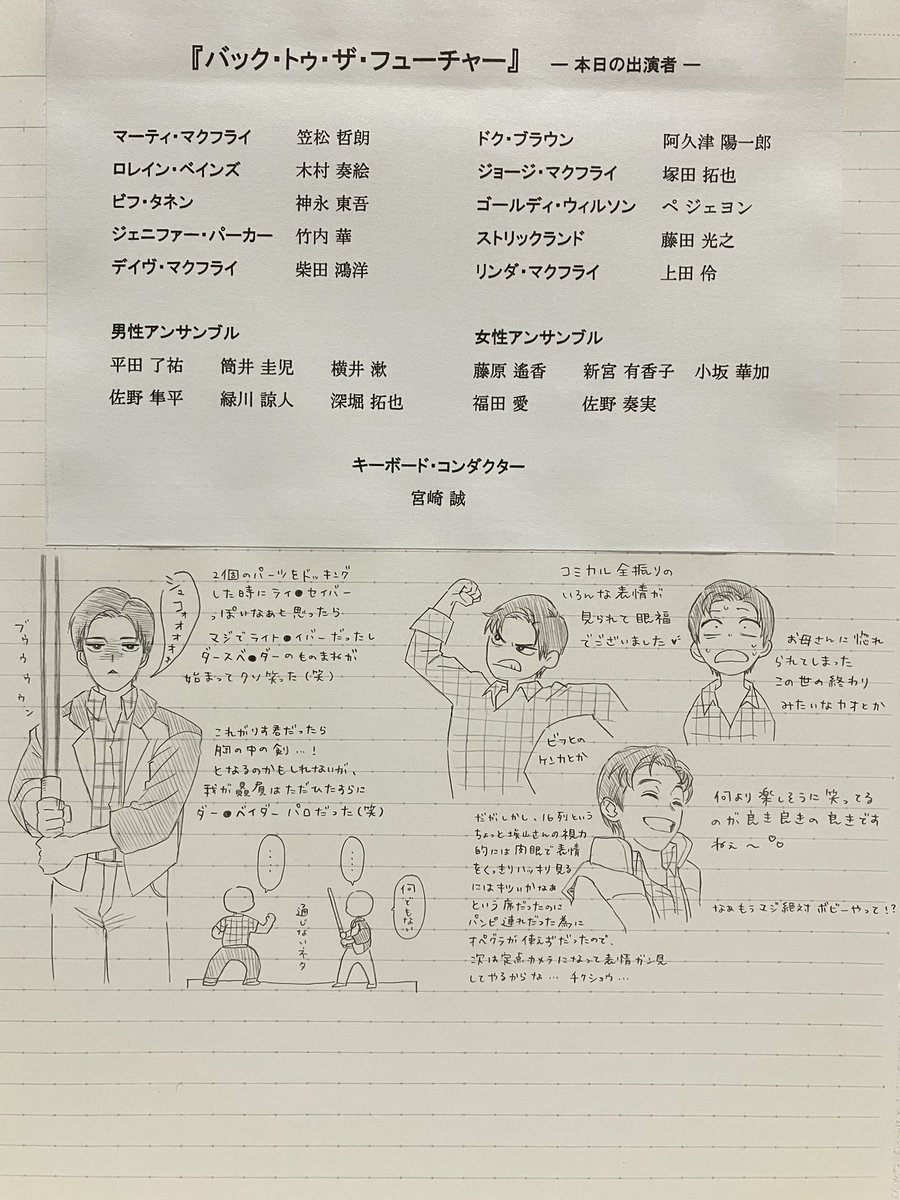 『バック・トゥ・ザ・フューチャー』 ― 本日の出演者 ―
マーティ・マクフライ 笠松 哲朗
ロレイン・ベインズ 木村 奏絵
ビフ・タネン 神永 東吾
ジェニファー・パーカー 竹内 華
デイヴ・マクフライ 柴田 鴻洋
ドク・ブラウン 阿久津 陽一郎
ジョージ・マクフライ 塚田 拓也
ゴールディ・ウィルソン ペ ジェヨン
ストリックランド 藤田 光之
リンダ・マクフライ 上田 伶
男性アンサンブル
平田 了祐 筒井 圭児 横井 漱
佐野 隼平 緑川 諒人 深堀 拓也
女性アンサンブル
藤原 遙香 新宮 有香子 小坂 華加
福田 愛 佐野 奏実
キーボード・コンダクター
宮崎 誠
ブゥゥゥゥン
シュコォオオオォ
2個のパーツをドッキング
した時にライ●セイバー
っぽいなぁと思ったら
マジでライト●イバーだったし
ダースベ●ダーのものまねが
始まってクソ笑った(笑)
これがりす君だったら
胸の中の剣…!
となるのかもしれないが、
我が贔屓はただひたすらに
ダー●ベイダー パロだった(笑)
…
…
何でもない
通じないネタ
コミカル全振りの
いろんな表情が
見られて眼福
でございました♥
ビフとの
ケンカとか
お母さんに惚れ
られてしまった
この世の終わり
みたいなカオとか
何より楽しそうに笑ってる
のが良き良きの良きです
ねぇ〜♡♡
なぁもうマジ絶対ボビーやって!?
だがしかし、16列という
ちょっと埃山さんの視力
的には肉眼で表情
をくっきりハッキリ見る
にはキツいかなぁ
という席だったのに
パンピ連れだった為に
オペグラが使えずだったので、
次は定点カメラになって表情ガン見
してやるからな… チクショウ…